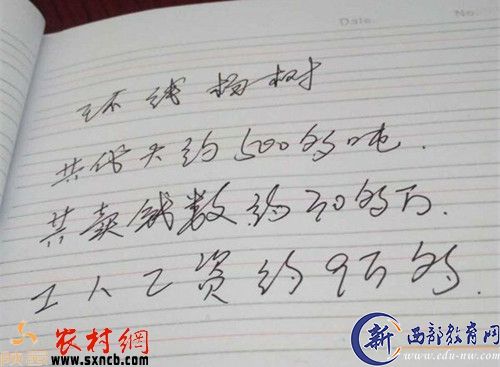 Date No.
环线杨树
共伐大约500多吨.
共卖钱数约20多万.
工人工资约9万多.
陕西 农村網
www.sxncb.com
新 西部教育网
www.edu-nw.com